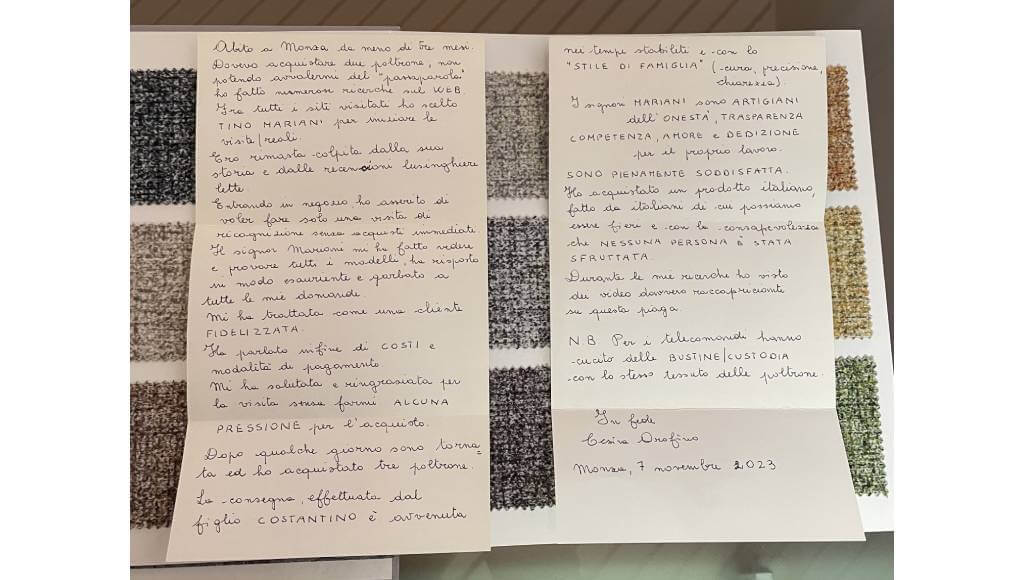 Abito a Monza da meno di tre mesi.
Dovevo acquistare due poltrone, non
potendo avvalermi del "passaparola"
ho fatto numerose ricerche sul WEB.
Tra tutti i siti visitati ho scelto
TINO MARIANI per iniziare le
visite/reali.
Ero rimasta colpita dalla sua
storia e dalle recensioni lusinghiere
lette.
Entrando in negozio, ho asserito di
voler fare solo una visita di
ricognizione senza acquisti immediati.
Il signor Mariani mi ha fatto vedere
e provare tutti i modelli, ha risposto
in modo esauriente e garbato a
tutte le mie domande.
Mi ha trattata come una cliente
FIDELIZZATA.
Ha parlato infine di COSTI e
modalità di pagamento.
Mi ha salutata e ringraziata per
la visita senza farmi ALCUNA
PRESSIONE per l'acquisto.
Dopo qualche giorno sono torna=
ta ed ho acquistato tre poltrone.
La consegna, effettuata dal
figlio COSTANTINO è avvenuta
nei tempi stabiliti e con lo
"STILE DI FAMIGLIA" (cura, precisione,
chiarezza).
I signori MARIANI sono ARTIGIANI
dell'ONESTÀ, TRASPARENZA
COMPETENZA, AMORE e DEDIZIONE
per il proprio lavoro.
SONO PIENAMENTE SODDISFATTA.
Ho acquistato un prodotto italiano,
fatto da italiani di cui possiamo
essere fieri e con la consapevolezza
che NESSUNA PERSONA È STATA
SFRUTTATA.
Durante le mie ricerche ho visto
dei video davvero raccapriccianti
su questa piaga.
N.B Per i telecomandi hanno
cucito delle BUSTINE/CUSTODIA
con lo stesso tessuto delle poltrone.
In fede
Cesira Orofino
Monza, 7 novembre 2023